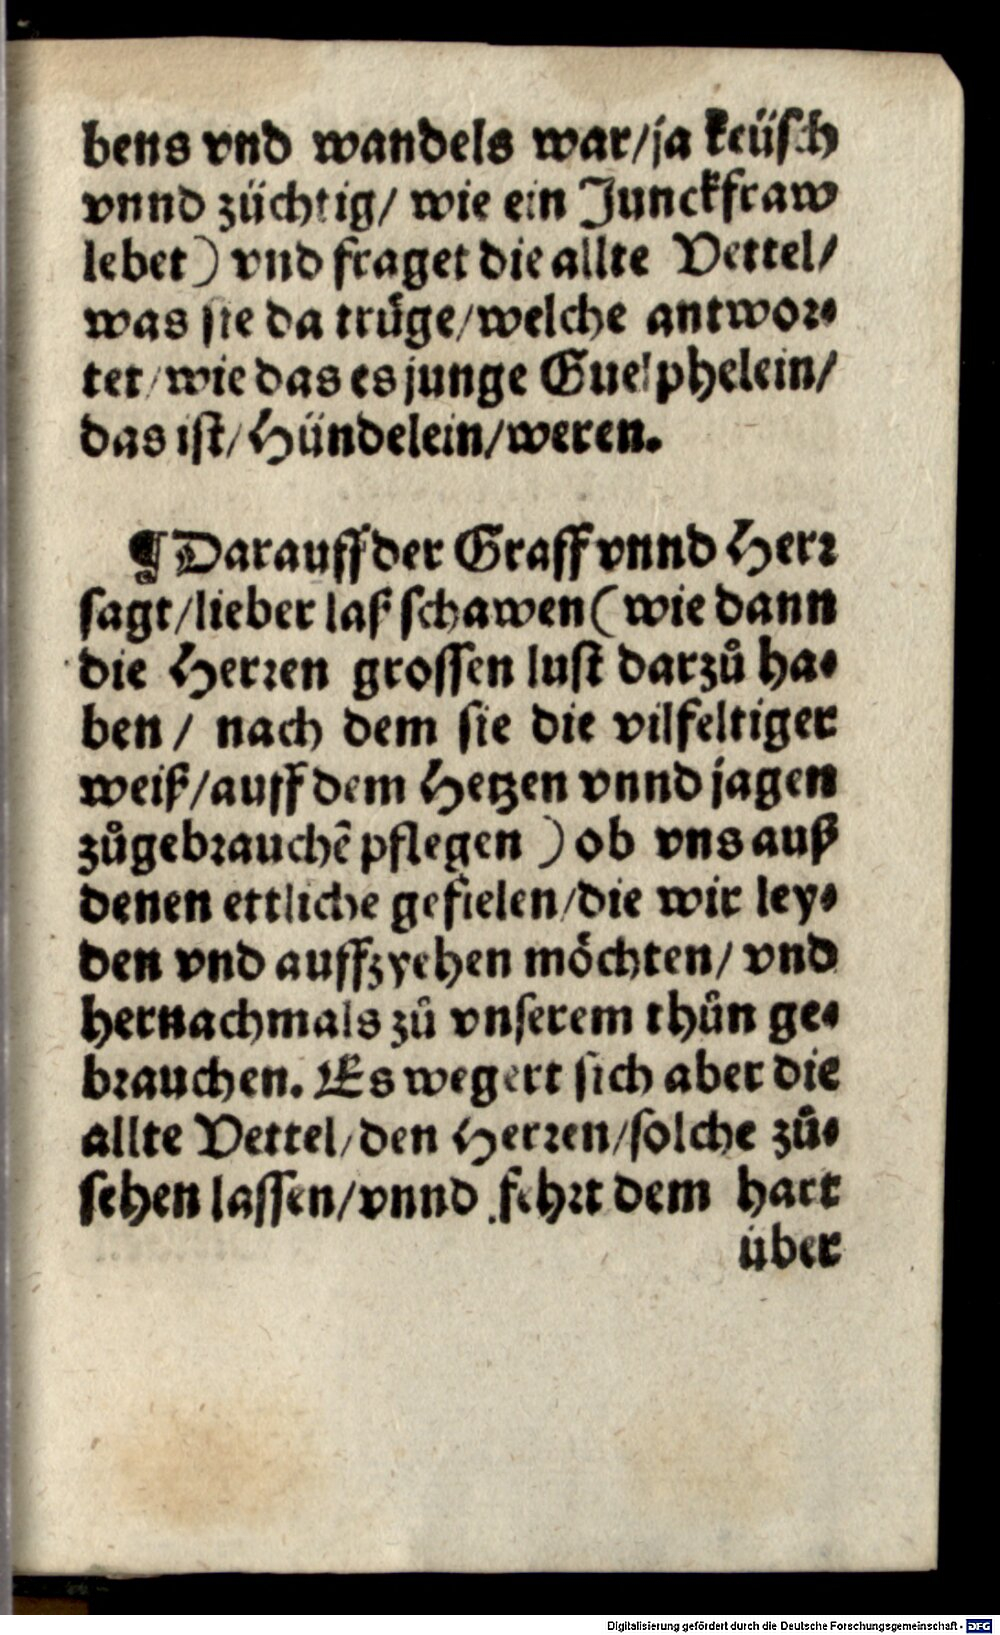 bens vnd wandels war/ja keüsch
vnnd züchtig/ wie ein Junckfraw
lebet) vnd fraget die allte Vettel/
was sie da trůge/welche antwor⸗
tet/wie das es junge Guelphelein/
das ist/Hündelein/weren.
¶Darauff der Graff vnnd Herr
sagt/lieber laß schawen(wie dann
die Herren grossen lust darzů ha⸗
ben/ nach dem sie die vilfeltiger
weiß/auff dem Hetzen vnnd jagen
zůgebrauchē pflegen) ob vns auß
denen ettliche gefielen/die wir ley⸗
den vnd auffzyehen möchten/ vnd
hernachmals zů vnserem thůn ge⸗
brauchen. Es wegert sich aber die
allte Vettel/den Herren/solche zů⸗
sehen lassen/vnnd fehrt dem hart
über
Digitalisierung gefördert durch die Deutsche Forschungsgemeinschaft - DFG